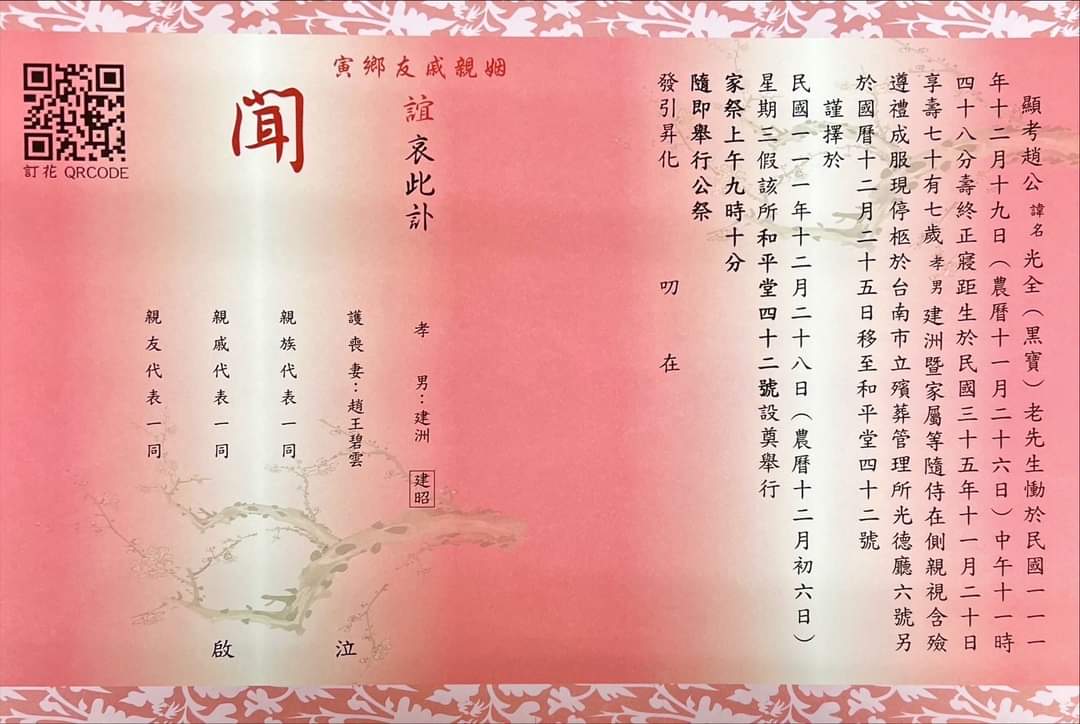 顯考趙公諱名光全（黑寶）老先生慟於民國一一一
年十二月十九日（農曆十一月二十六日）中午十一時
四十八分壽終正寢距生於民國三十五年十一月二十日
享壽七十有七歲孝男建洲暨家屬等隨侍在側親視含殮
遵禮成服現停柩於台南市立殯葬管理所光德廳六號另
於國曆十二月二十五日移至和平堂四十二號
謹擇於
民國一一一年十二月二十八日（農曆十二月初六日）
星期三假該所和平堂四十二號設奠舉行
家祭上午九時十分
隨即舉行公祭
發引昇化 叨在
姻親戚友鄉寅
誼哀此訃
聞
孝 男：建洲 建昭
護喪妻：趙王碧雲
親族代表一同
親戚代表一同
親友代表一同
泣
啟
訂花 QRCODE